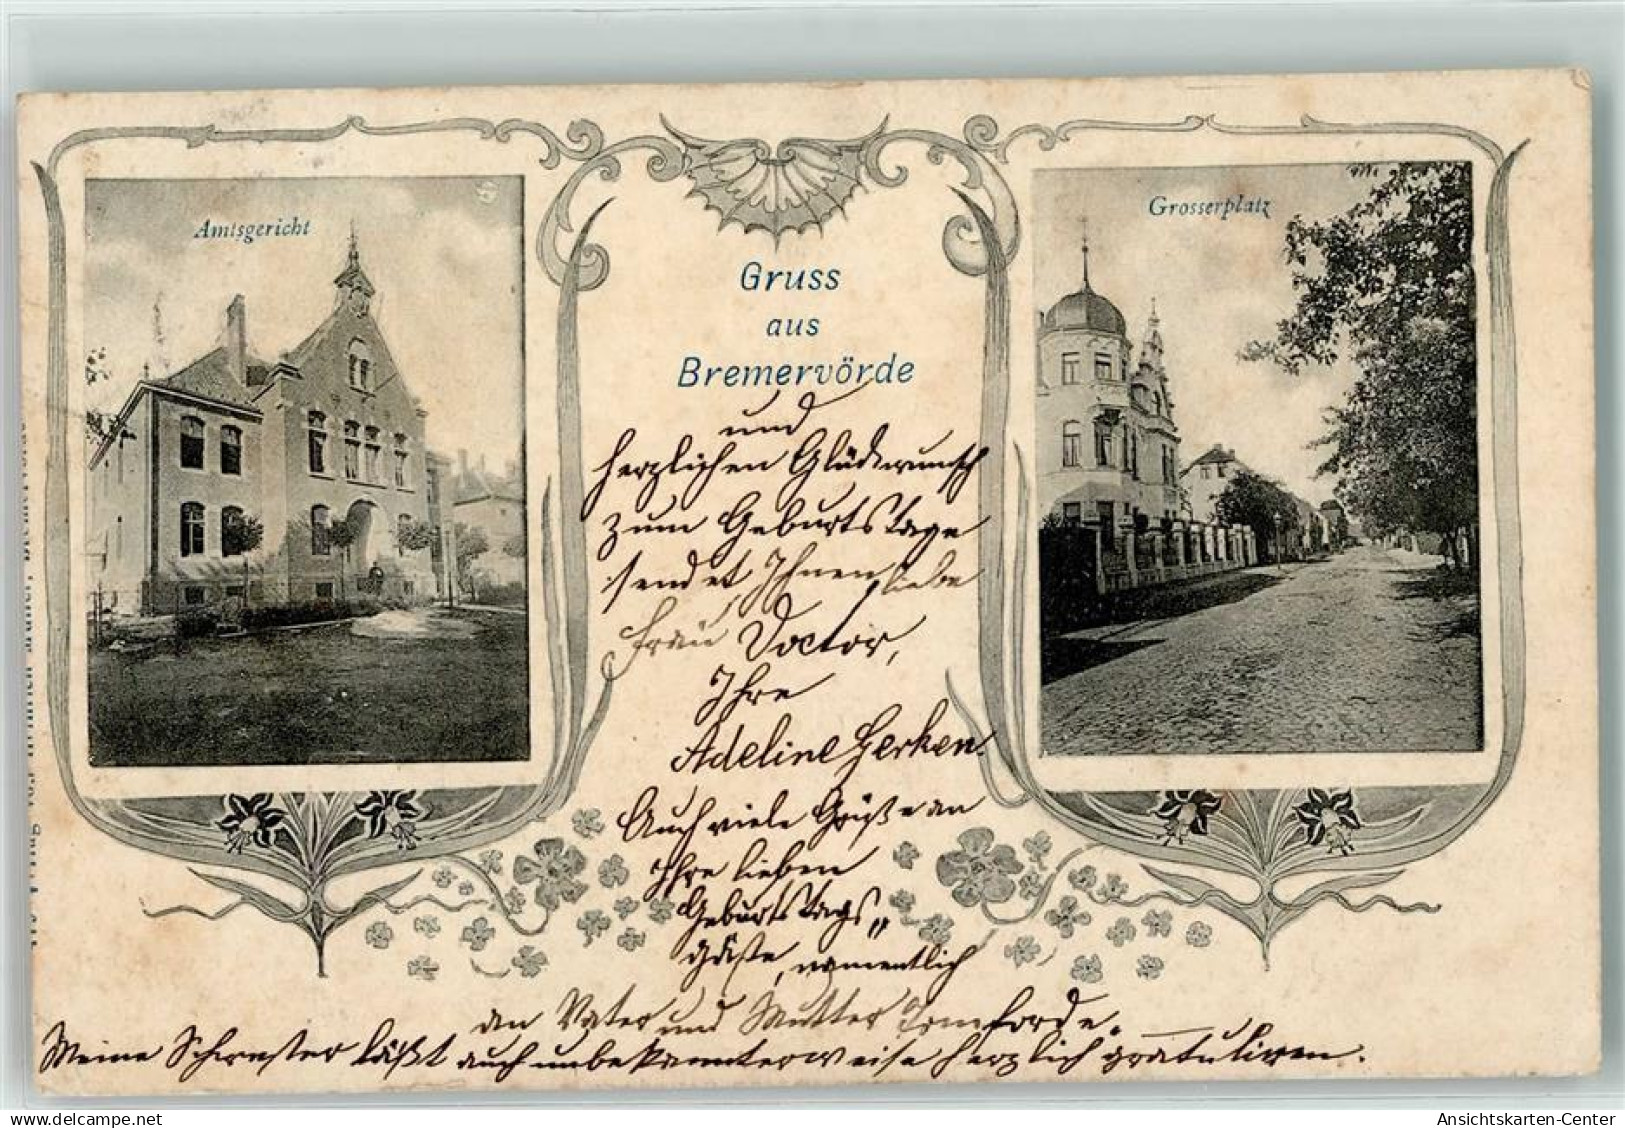 Amtsgericht
Grosserplatz
Gruss
aus
Bremervörde
und
herzlichen Glückwunsch
zum Geburtstage
sendet Ihnen, liebe
Frau Doctor,
Ihre
Adeline Gerken.
Auch viele Grüße an
Ihre lieben
Geburtstags„
gäste, namentlich
an Vater und Mutter
Meine Schwester läßt auch unbekannterweise herzlich gratuliren.
delcampe.net
Ansichtskarten-Center